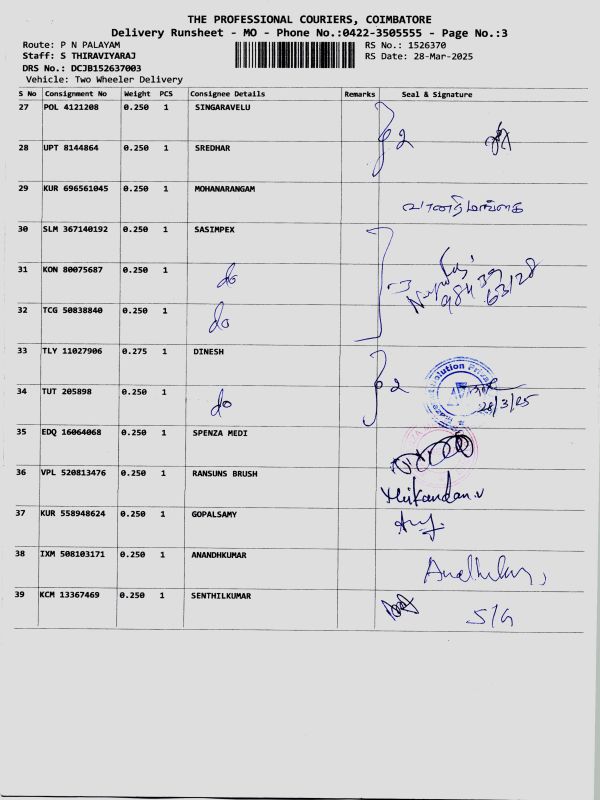 THE PROFESSIONAL COURIERS, COIMBATORE
Delivery Runsheet - MO - Phone No.:0422-3505555 - Page No.:3
Route: P N PALAYAM
RS No.: 1526370
Staff: S THIRAVIYARAJ
RS Date: 28-Mar-2025
DRS No.: DCJB152637003
Vehicle: Two Wheeler Delivery
S No Consignment No Weight PCS Consignee Details Remarks Seal & Signature
27 POL 4121208 0.250 1 SINGARAVELU
2
28 UPT 8144864 0.250 1 SREDHAR
29 KUR 696561045 0.250 1 MOHANARANGAM
30 SLM 367140192 0.250 1 SASIMPEX
31 KON 80075687 0.250 1 do
3
32 TCG 50838840 0.250 1 do
33 TLY 11027906 0.275 1 DINESH
34 TUT 205898 0.250 1 do
2
28/3/25
35 EDQ 16064068 0.250 1 SPENZA MEDI
36 VPL 520813476 0.250 1 RANSUNS BRUSH
37 KUR 558948624 0.250 1 GOPALSAMY
38 IXM 508103171 0.250 1 ANANDHKUMAR
39 KCM 13367469 0.250 1 SENTHILKUMAR
S/G